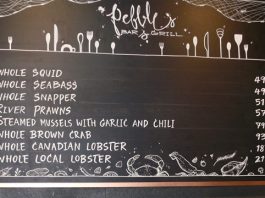 Pebbles
BAR & GRILL
WHOLE SQUID 49
WHOLE SEABASS 49
WHOLE SNAPPER 51
RIVER PRAWNS 57
STEAMED MUSSELS WITH GARLIC AND CHILI 74
WHOLE BROWN CRAB 93
WHOLE CANADIAN LOBSTER 18
WHOLE LOCAL LOBSTER 21